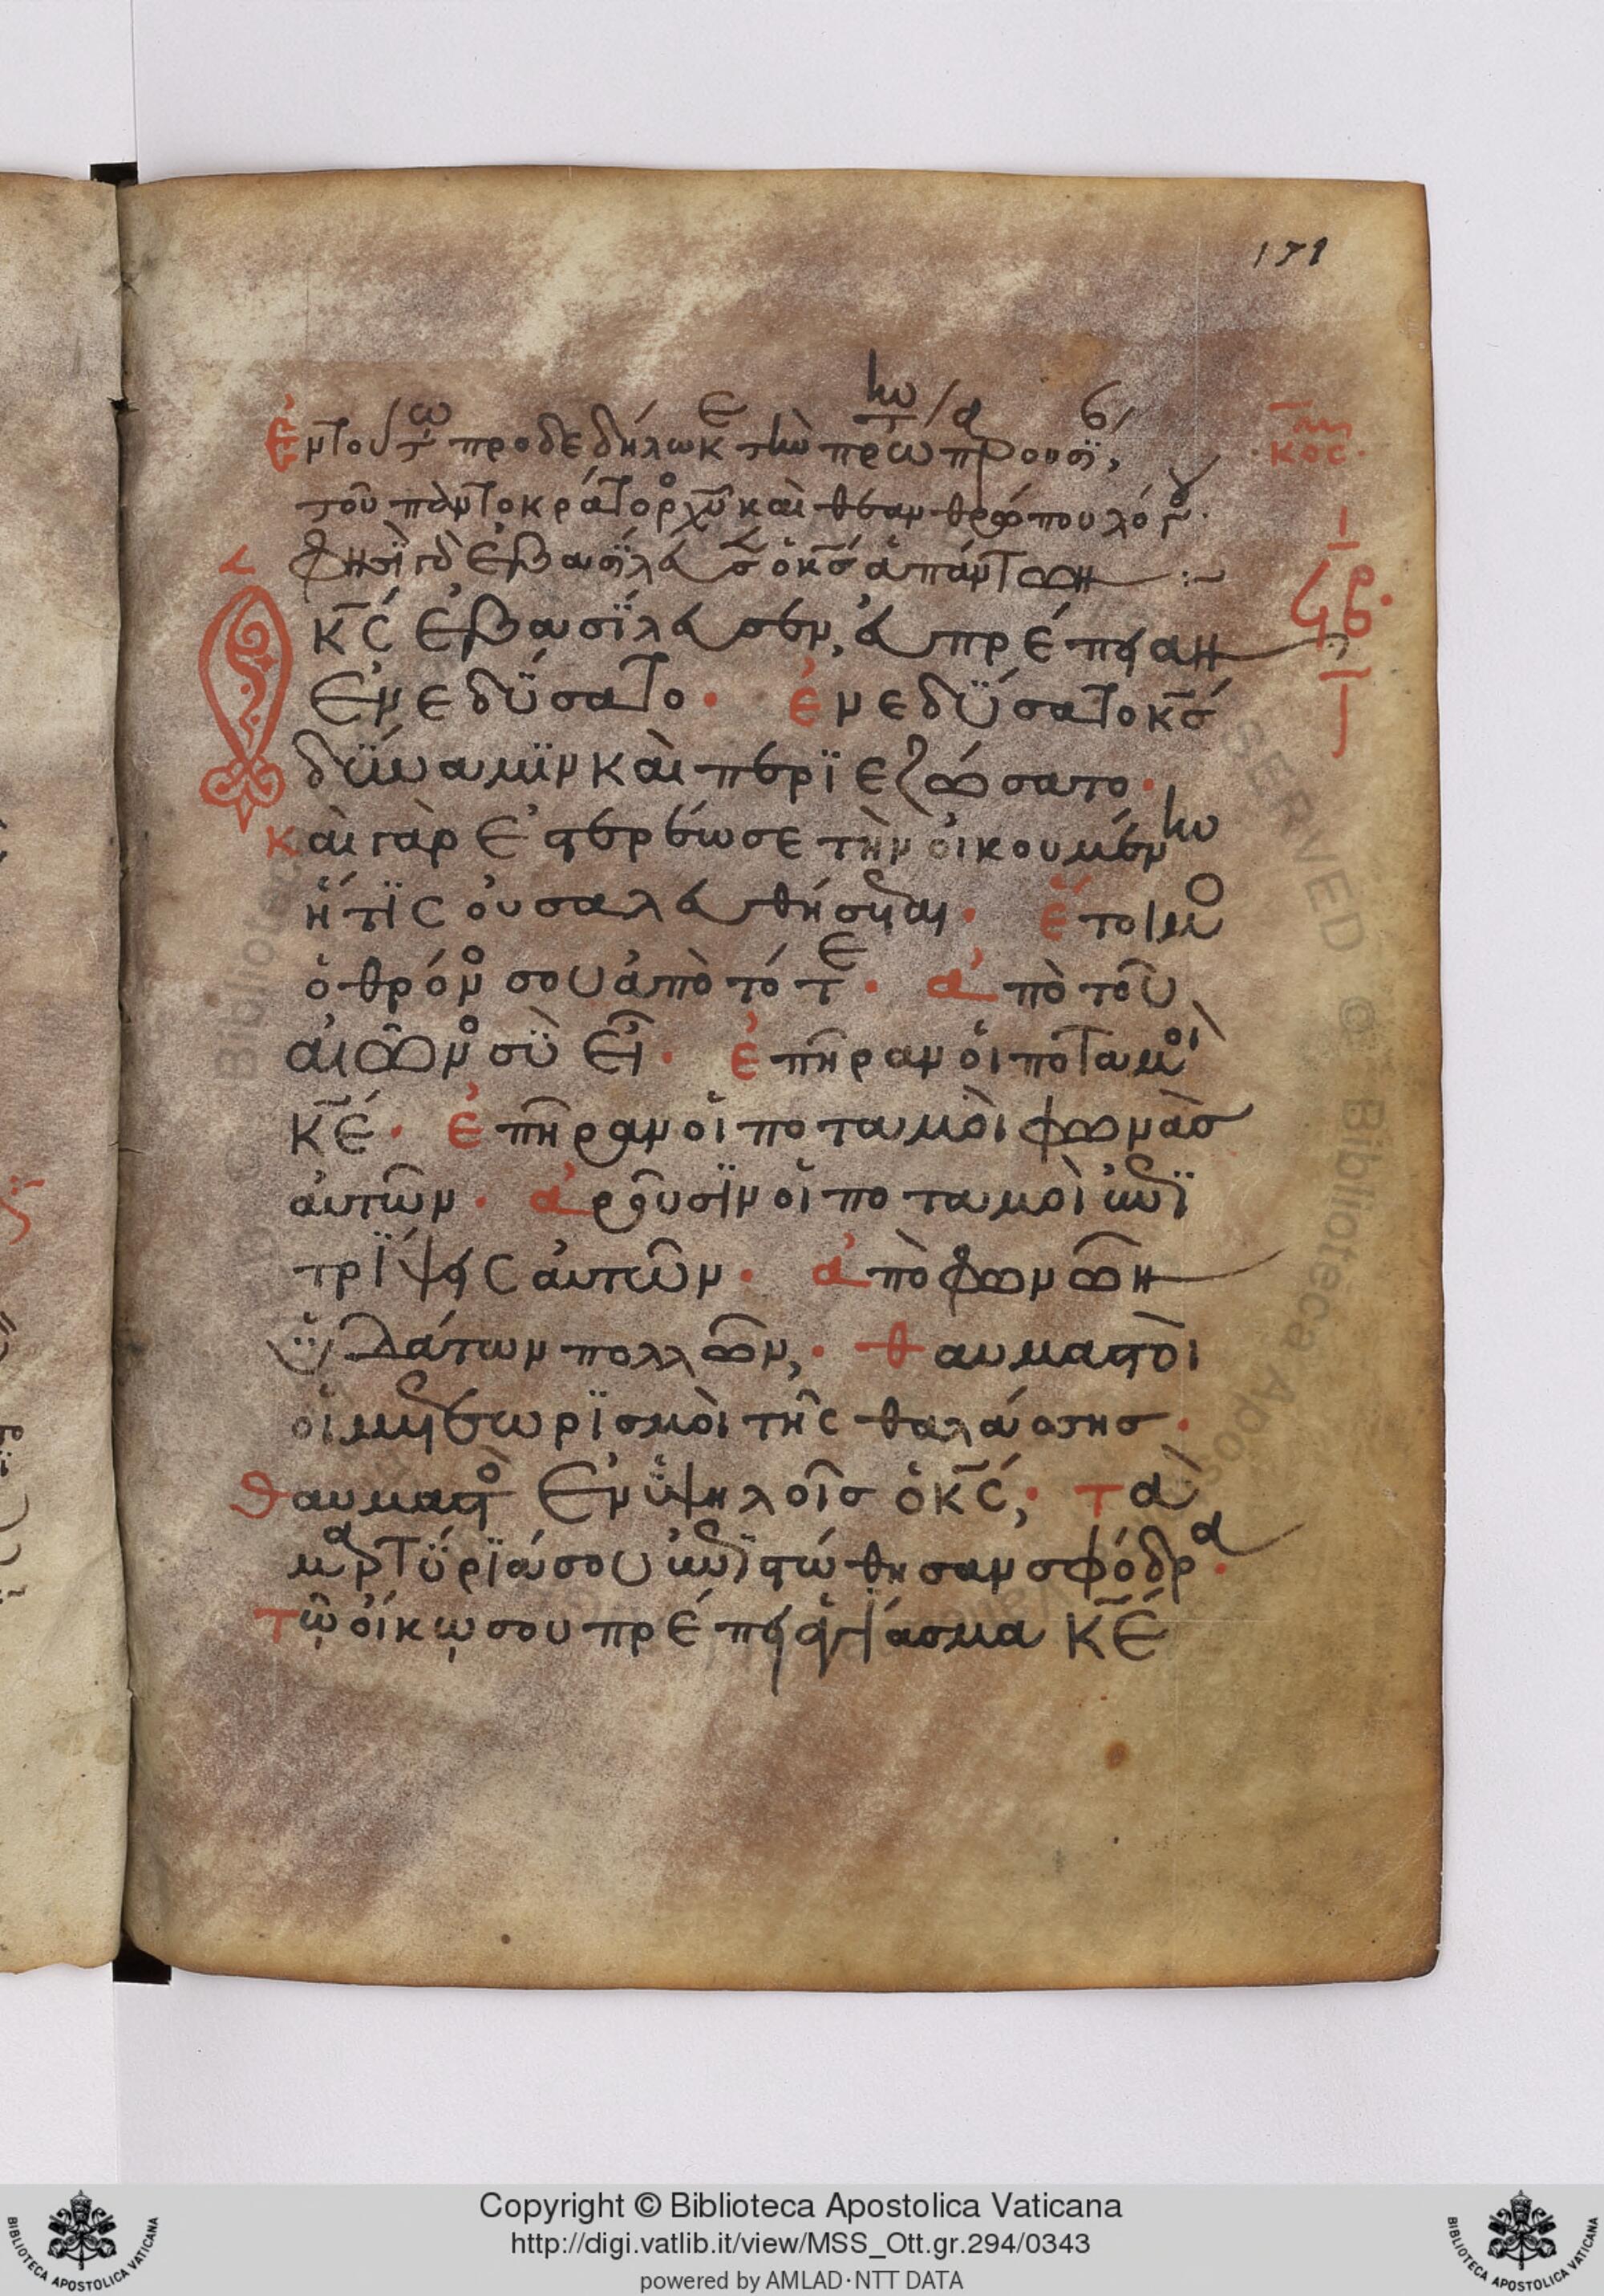 171
Ἐν τούτω προδεδήλωκε τὴν πρώτην παρουσί,
τοῦ παντοκράτορος χυ καὶ θεανθρώπου λόγου·
φησὶ γὰρ ἐβασίλευσεν ὁ κς ἁπάντων :~
κς ἐβασίλευσεν, εὐπρέπειαν
ἐνεδύσατο· ἐνεδύσατο κς
δύναμιν καὶ περιεζώσατο·
καὶ γὰρ ἐστερέωσε τὴν οἰκουμένην
ἥτις οὐ σαλευθήσεται· ἕτοιμος
ὁ θρόνος σου ἀπὸ τότε· ἀπὸ τοῦ
αἰῶνος σὺ εἶ· ἐπῆραν οἱ ποταμοὶ
κε· ἐπῆραν οἱ ποταμοὶ φωνὰς
αὐτῶν· ἀροῦσιν οἱ ποταμοὶ ἐπι
τρίψεις αὐτῶν· ἀπὸ φωνῶν
ὑδάτων πολλῶν,· θαυμαστοὶ
οἱ μετεωρισμοὶ τῆς θαλάσσης·
θαυμαστὸς ἐν ὑψηλοῖς ὁ κς,· τὰ
μαρτύριά σου ἐπιστώθησαν σφόδρα·
τῷ οἴκῳ σου πρέπει ἁγίασμα κε
SERVED © Biblioteca Apos
Copyright © Biblioteca Apostolica Vaticana
http://digi.vatlib.it/view/MSS_Ott.gr.294/0343
powered by AMLAD·NTT DATA
BIBLIOTECA APOSTOLICA VATICANA
BIBLIOTECA APOSTOLICA VATICANA